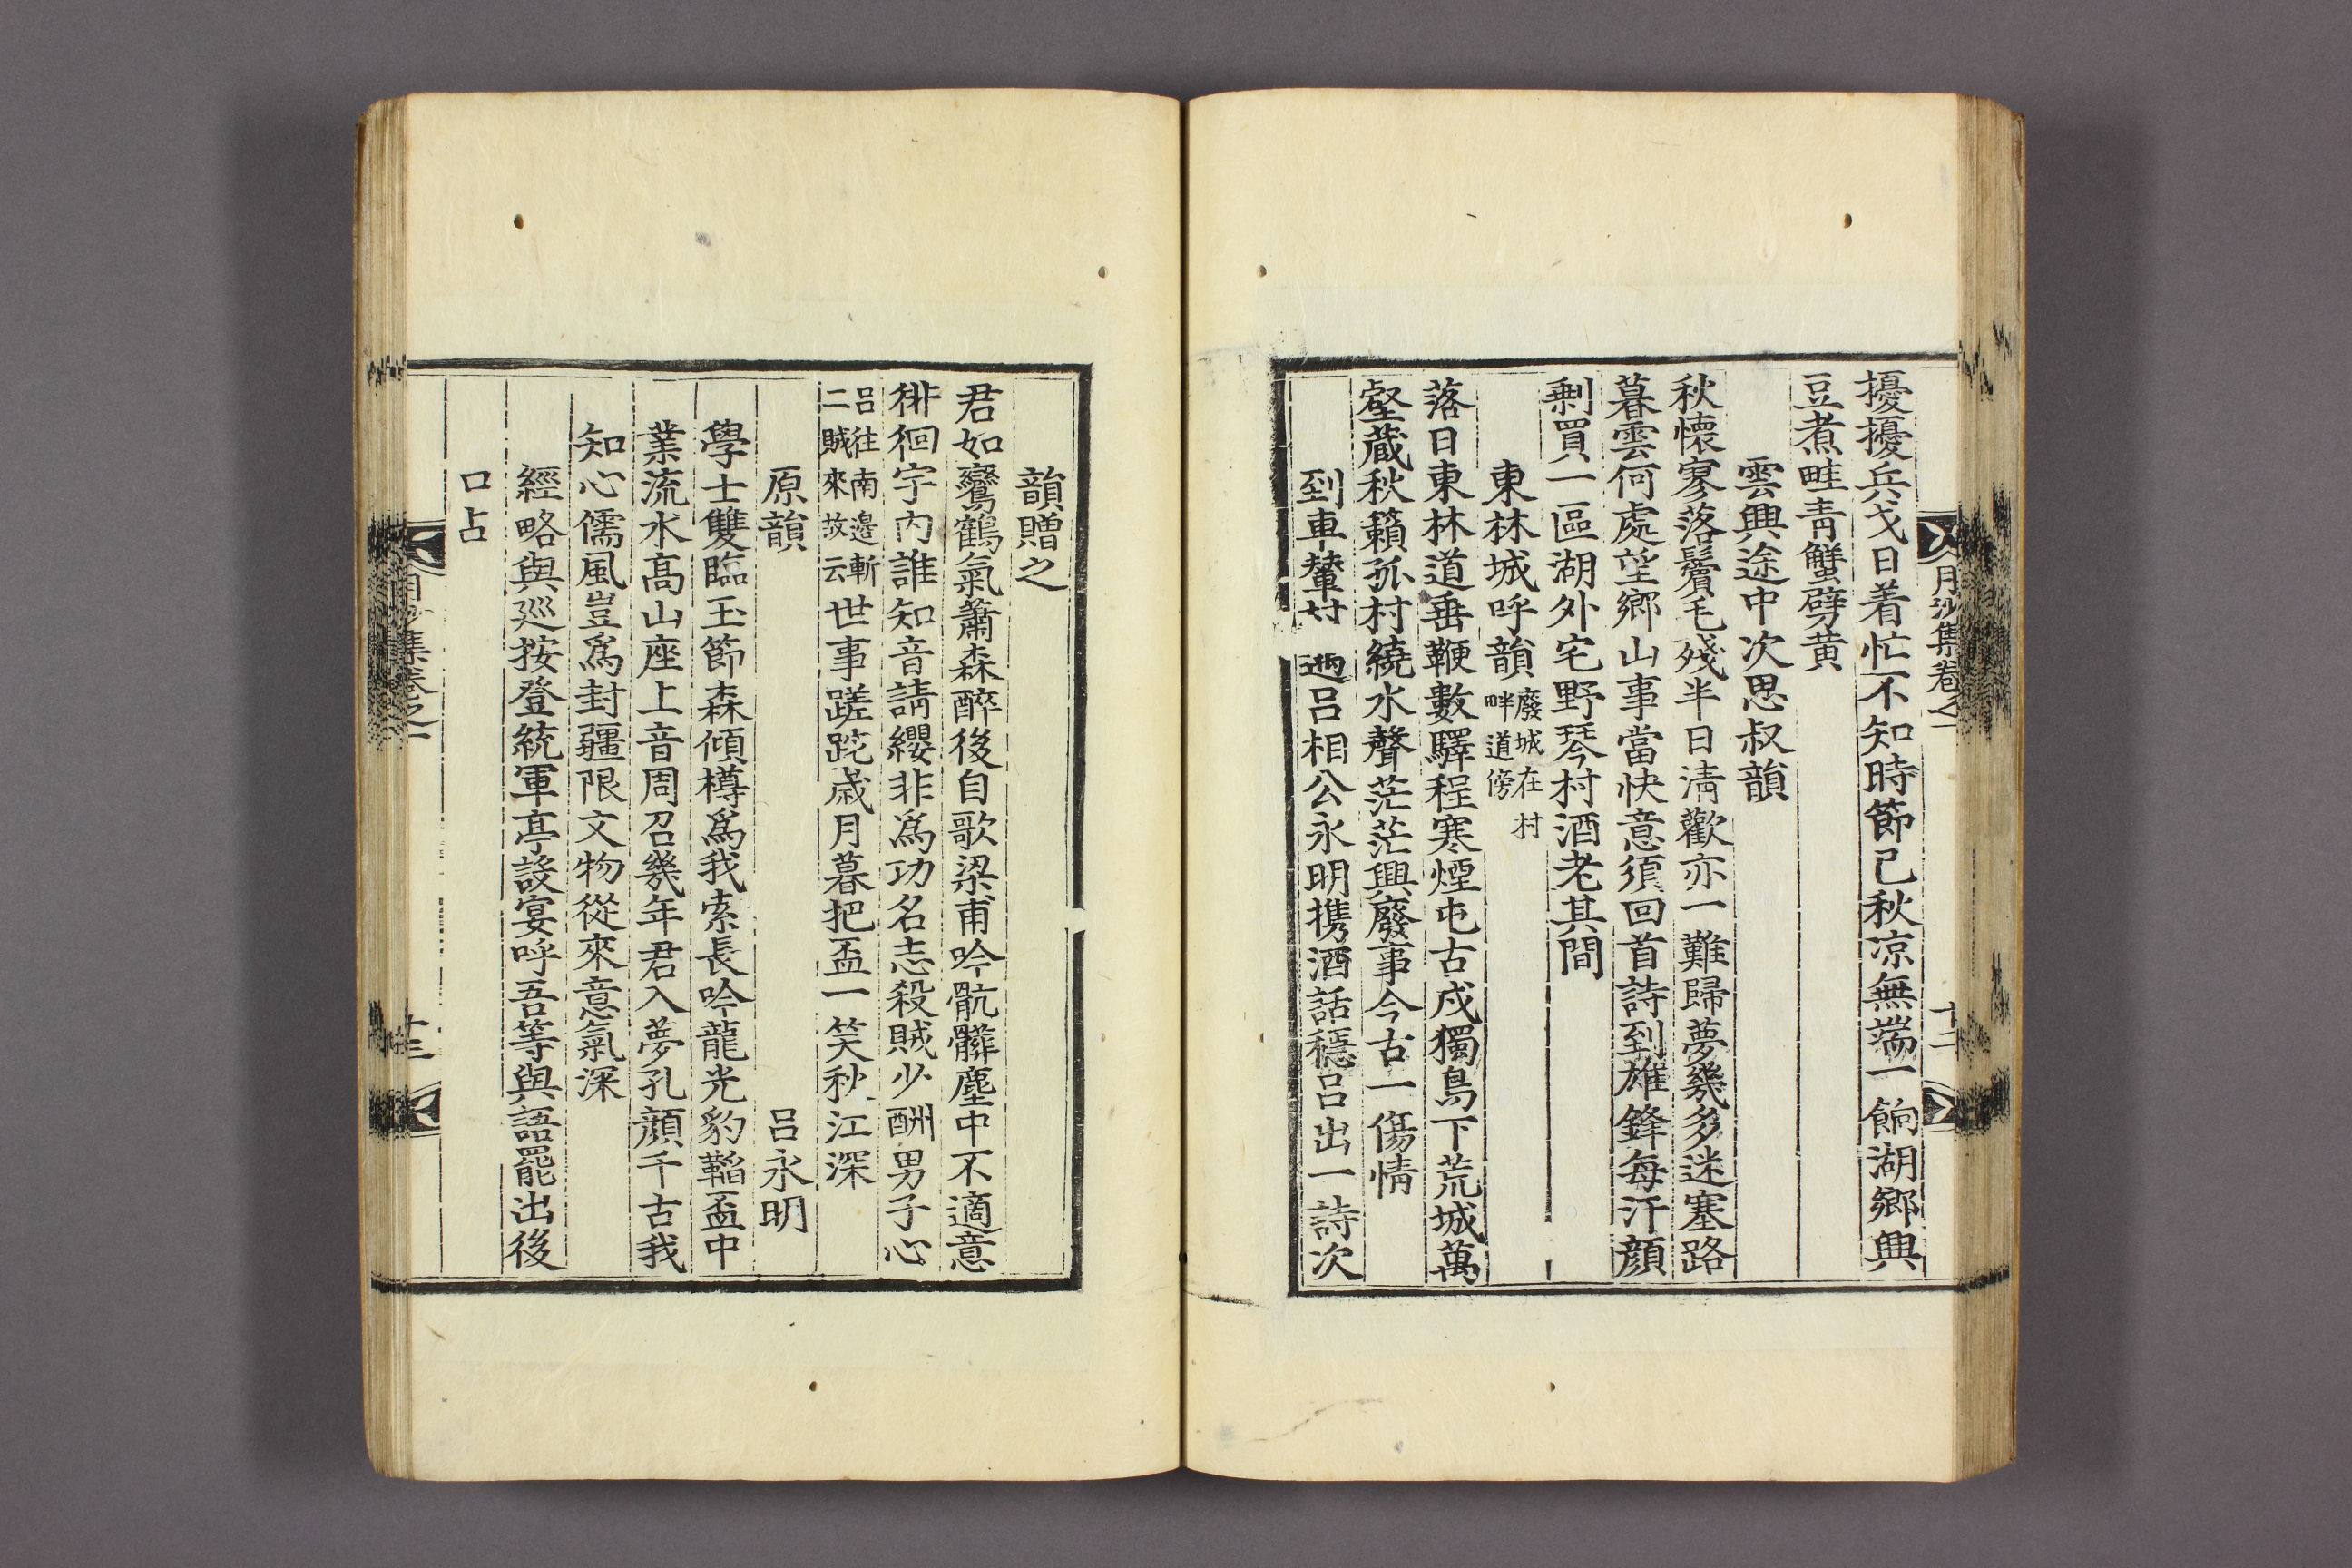 月沙集卷之一
十二
擾擾兵戈日着忙不知時節已秋凉無端一餉湖鄉興
豆煮畦靑蟹劈黃
雲興途中次思叔韻
秋懷寥落鬢毛殘半日淸歡亦一難歸夢幾多迷塞路
暮雲何處望鄉山事當快意須回首詩到雄鋒每汗顔
剩買一區湖外宅野琴村酒老其間
東林城呼韻廢城在村
畔道傍
落日東林道垂鞭數驛程寒煙屯古戍獨鳥下荒城萬
壑藏秋籟孤村繞水聲茫茫興廢事今古一傷情
到車輦村逈呂相公永明携酒話穩呂出一詩次
韻贈之
君如鸞鶴氣蕭森醉後自歌梁甫吟骯髒塵中不適意
徘徊宇內誰知音請纓非爲功名志殺賊少酬男子心
呂往南邉斬
二賊來故云世事蹉跎歲月暮把盃一笑秋江深
原韻 呂永明
學士雙臨玉節森傾樽爲我索長吟龍光豹鞱盃中
業流水高山座上音周召幾年君入夢孔顔千古我
知心儒風豈爲封疆限文物從來意氣深
經略與巡按登統軍亭設宴呼吾等與語罷出後
口占
月沙集卷之一
十三